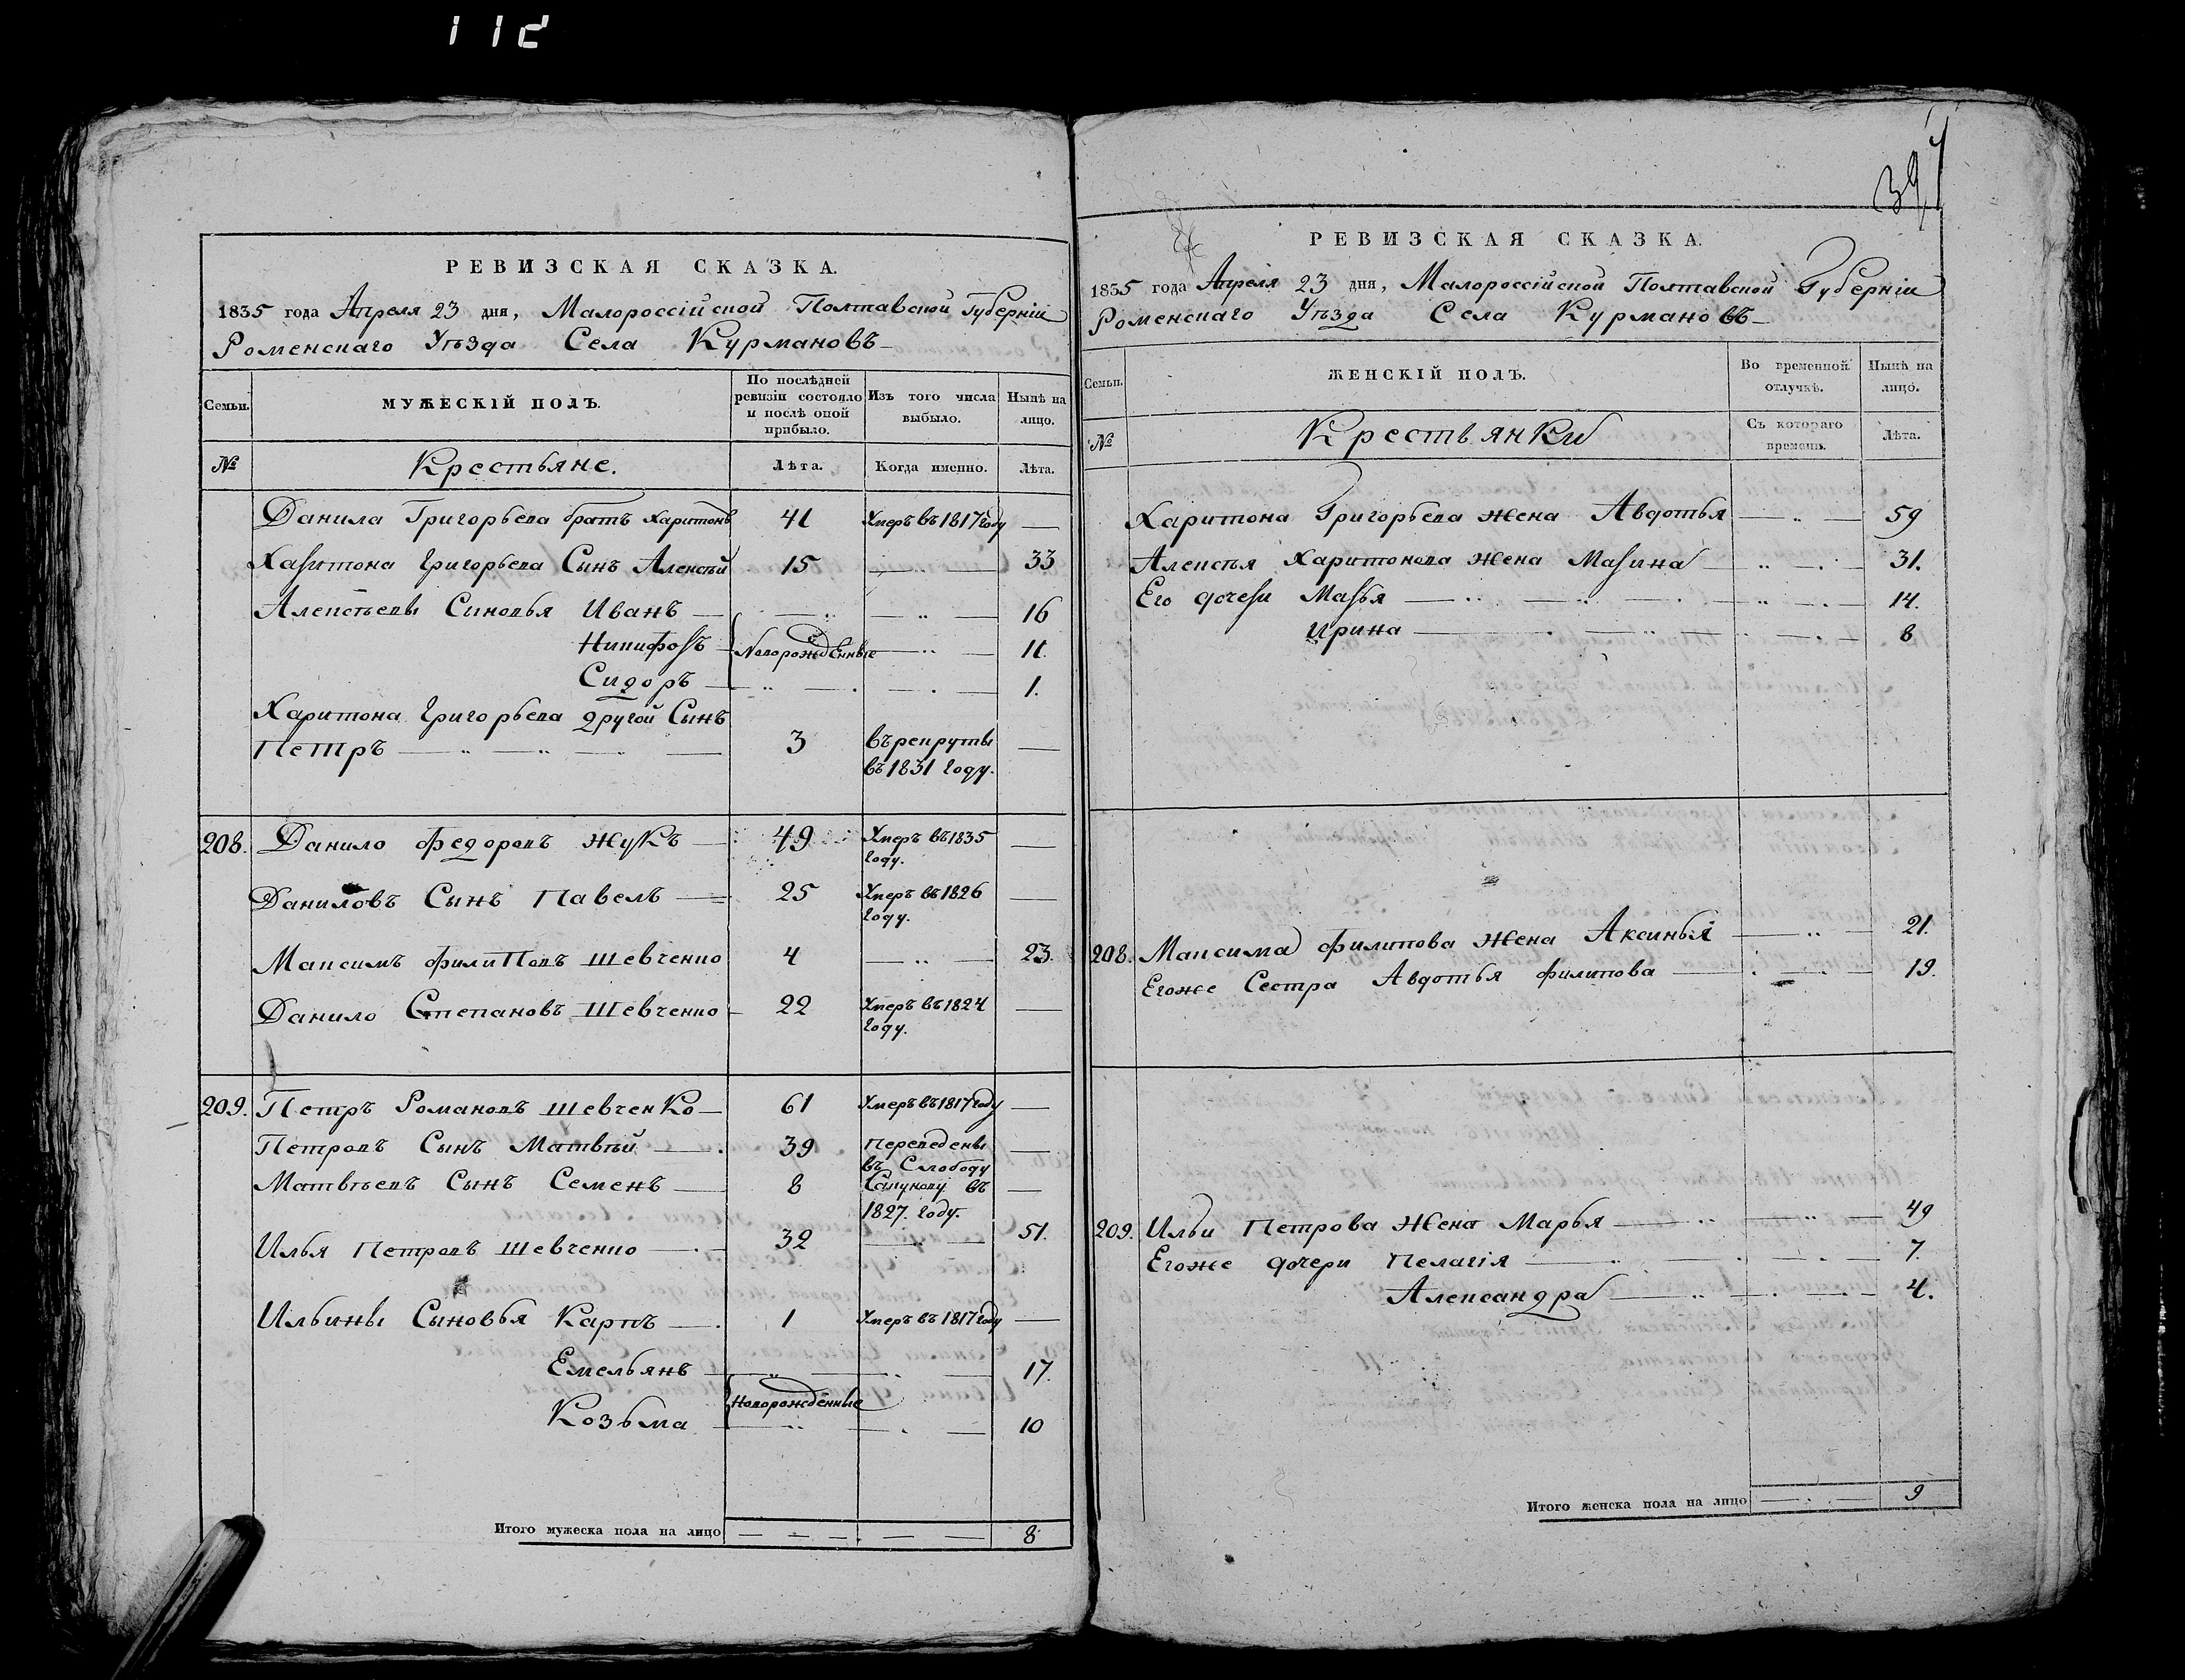 112
РЕВИЗСКАЯ СКАЗКА.
1835 года Апреля 23 дня, Малороссійской Полтавской Губерніи
Роменскаго Уѣзда Села Курмановъ
Семьи.
МУЖЕСКІЙ ПОЛЪ.
По послѣдней ревизіи состояло и послѣ оной прибыло.
Изъ того числа выбыло.
Нынѣ на лицо.
№
Крестьяне.
Лѣта.
Когда именно.
Лѣта.
Данила Григорьева братъ Харитонъ 41 Умеръ въ 1817 году
Харитона Григорьева Сынъ Алексѣй 15 33
Алексѣевы Синовья Иванъ 16
Никифоръ Новорожденные 11.
Сидоръ 1.
Харитона Григорьева другой Сынъ
Петръ 3 въ рекруты
въ 1831 году.
208. Данило Федоровъ Жукъ 49 Умеръ въ 1835
году.
Даниловъ Сынъ Павелъ 25 Умеръ въ 1826
году.
Максимъ Филиповъ Шевченко 4 23.
Данило Степановъ Шевченко 22 Умеръ въ 1824
году.
209. Петръ Романовъ Шевченко 61 Умеръ въ 1817 году
Петровъ Сынъ Матвѣй 39 Переведены
въ Слободу
Матвѣевъ Сынъ Семенъ 8 въ
1827. году.
Илья Петровъ Шевченко 32 51.
Ильины Сыновья Карпъ 1 Умеръ въ 1817 году
Емельянъ 17.
Новорожденные
Козьма 10
Итого мужеска пола на лицо 8
39
РЕВИЗСКАЯ СКАЗКА.
1835 года Апреля 23 дня, Малороссійской Полтавской Губерніи
Роменскаго Уѣзда Села Курмановъ
Семьи.
ЖЕНСКІЙ ПОЛЪ.
Во временной отлучкѣ.
Нынѣ на лицо.
№
Крестьянки
Съ котораго времени.
Лѣта.
Харитона Григорьева жена Авдотья 59
Алексѣя Харитонова жена Марина 31.
Его дочери Марья 14.
Ирина 8
208. Максима Филипова жена Аксинья 21.
Егоже Сестра Авдотья Филипова 19.
209. Ильи Петрова Жена Марья 49
Егоже дочери Пелагія 7.
Александра 4.
Итого женска пола на лицо 9